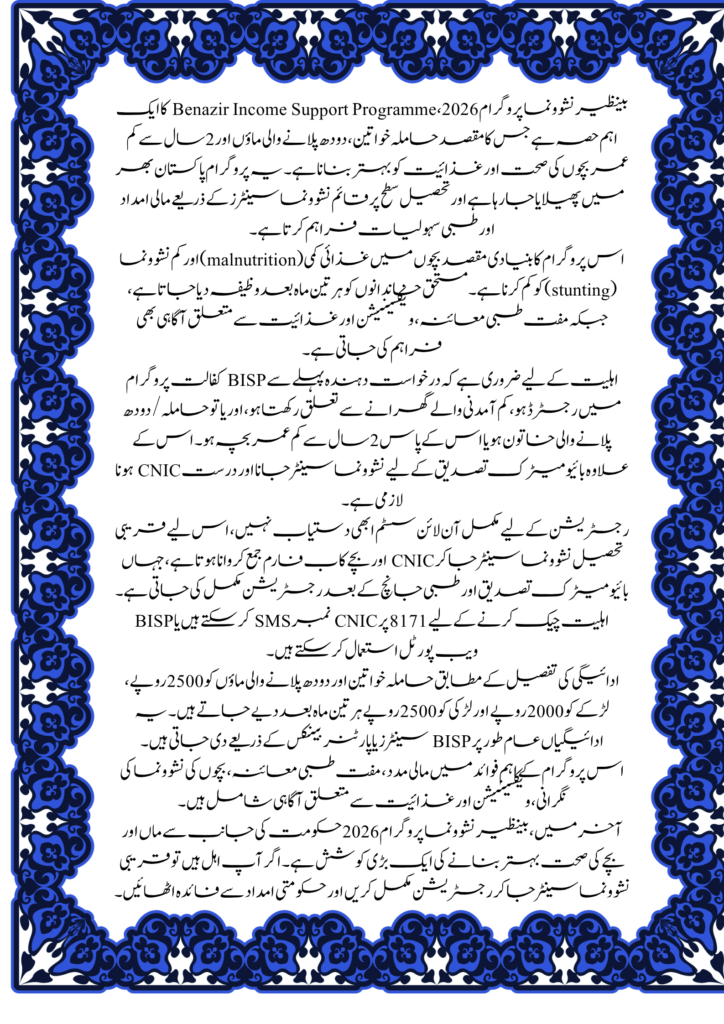 بینظیر نشوونما پروگرام 2026، Benazir Income Support Programme کا ایک
اہم حصہ ہے جس کا مقصد حاملہ خواتین، دودھ پلانے والی ماؤں اور 2 سال سے کم
عمر بچوں کی صحت اور غذائیت کو بہتر بنانا ہے۔ یہ پروگرام پاکستان بھر
میں پھیلایا جا رہا ہے اور تحصیل سطح پر قائم نشوونما سینٹرز کے ذریعے مالی امداد
اور طبی سہولیات فراہم کرتا ہے۔
اس پروگرام کا بنیادی مقصد بچوں میں غذائی کمی (malnutrition) اور کم نشوونما
(stunting) کو کم کرنا ہے۔ مستحق خاندانوں کو ہر تین ماہ بعد وظیفہ دیا جاتا ہے،
جبکہ مفت طبی معائنہ، ویکسینیشن اور غذائیت سے متعلق آگاہی بھی
فراہم کی جاتی ہے۔
اہلیت کے لیے ضروری ہے کہ درخواست دہندہ پہلے سے BISP کفالت پروگرام
میں رجسٹرڈ ہو، کم آمدنی والے گھرانے سے تعلق رکھتا ہو، اور یا تو حاملہ / دودھ
پلانے والی خاتون ہو یا اس کے پاس 2 سال سے کم عمر بچہ ہو۔ اس کے
علاوہ بائیومیٹرک تصدیق کے لیے نشوونما سینٹر جانا اور درست CNIC ہونا
لازمی ہے۔
رجسٹریشن کے لیے مکمل آن لائن سسٹم ابھی دستیاب نہیں، اس لیے قریبی
تحصیل نشوونما سینٹر جا کر CNIC اور بچے کا ب فارم جمع کروانا ہوتا ہے، جہاں
بائیومیٹرک تصدیق اور طبی جانچ کے بعد رجسٹریشن مکمل کی جاتی ہے۔
اہلیت چیک کرنے کے لیے 8171 پر CNIC نمبر SMS کر سکتے ہیں یا BISP
ویب پورٹل استعمال کر سکتے ہیں۔
ادائیگی کی تفصیل کے مطابق حاملہ خواتین اور دودھ پلانے والی ماؤں کو 2500 روپے،
لڑکے کو 2000 روپے اور لڑکی کو 2500 روپے ہر تین ماہ بعد دیے جاتے ہیں۔ یہ
ادائیگیاں عام طور پر BISP سینٹرز یا پارٹنر بینکس کے ذریعے دی جاتی ہیں۔
اس پروگرام کے اہم فوائد میں مالی مدد، مفت طبی معائنہ، بچوں کی نشوونما کی
نگرانی، ویکسینیشن اور غذائیت سے متعلق آگاہی شامل ہیں۔
آخر میں، بینظیر نشوونما پروگرام 2026 حکومت کی جانب سے ماں اور
بچے کی صحت بہتر بنانے کی ایک بڑی کوشش ہے۔ اگر آپ اہل ہیں تو قریبی
نشوونما سینٹر جا کر رجسٹریشن مکمل کریں اور حکومتی امداد سے فائدہ اٹھائیں۔